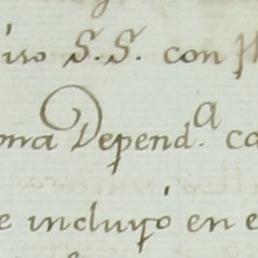 iso S.S. con
Depend.ª ca
e incluyó en e